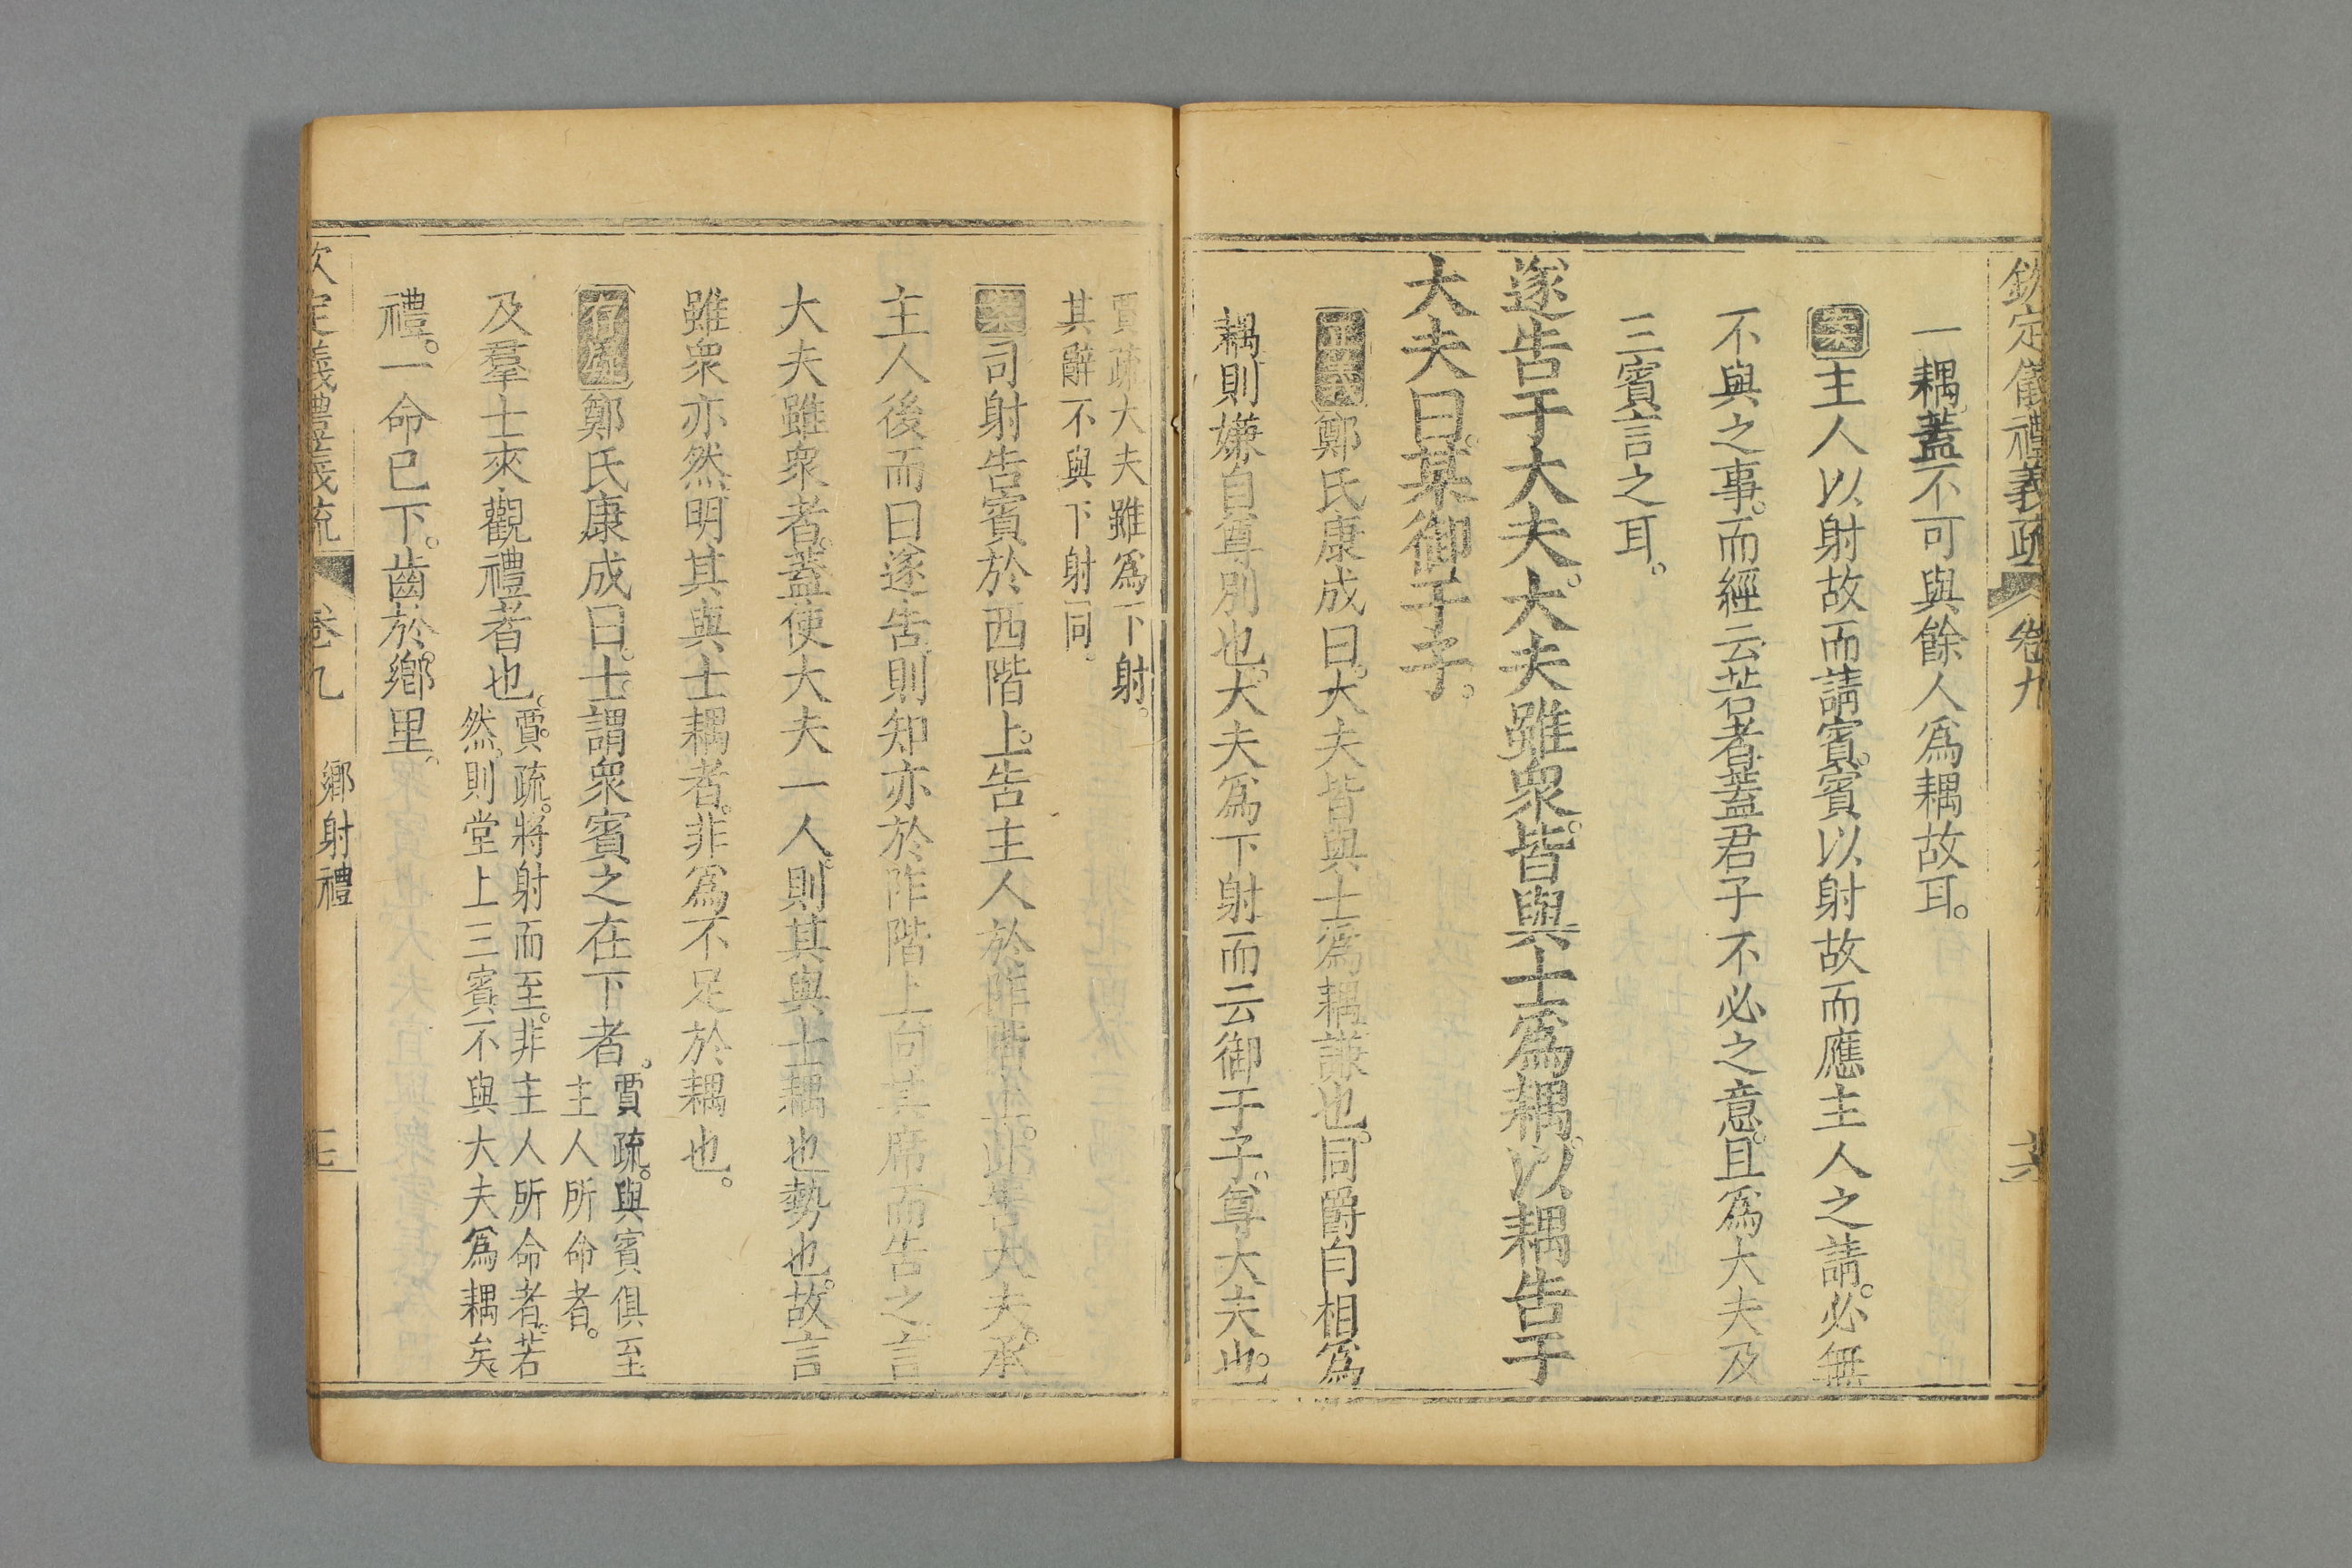 欽定儀禮義疏 卷九
一耦蓋不可與餘人爲耦故耳。
案主人以射故而請賓。賓以射故而應主人之請。必無
不與之事。而經云若者蓋君子不必之意。且爲大夫及
三賓言之耳。
遂告于大夫。大夫雖衆。皆與士爲耦。以耦告于
大夫曰。某御于子。
正義鄭氏康成曰。大夫皆與士爲耦。謙也。同爵自相爲
耦則嫌自尊別也。大夫爲下射而云御于子。尊大夫也。
賈疏大夫雖爲下射。
其辭不與下射同。
案司射告賓於西階上。告主人於阼階上。此告大夫。承
主人後而曰遂告。則知亦於阼階上向其席而告之言
大夫雖衆者。蓋使大夫一人。則其與士耦也勢也。故言
雖衆亦然。明其與士耦者。非爲不足於耦也。
鄭氏康成曰。士。謂衆賓之在下者。
賈疏。與賓俱至
主人所命者。
及羣士來觀禮者也。
賈疏。將射而至。非主人所命者。若
然。則堂上三賓不與大夫爲耦矣。
禮。一命已下。齒於鄉里。
欽定儀禮義疏 卷九 鄉射禮